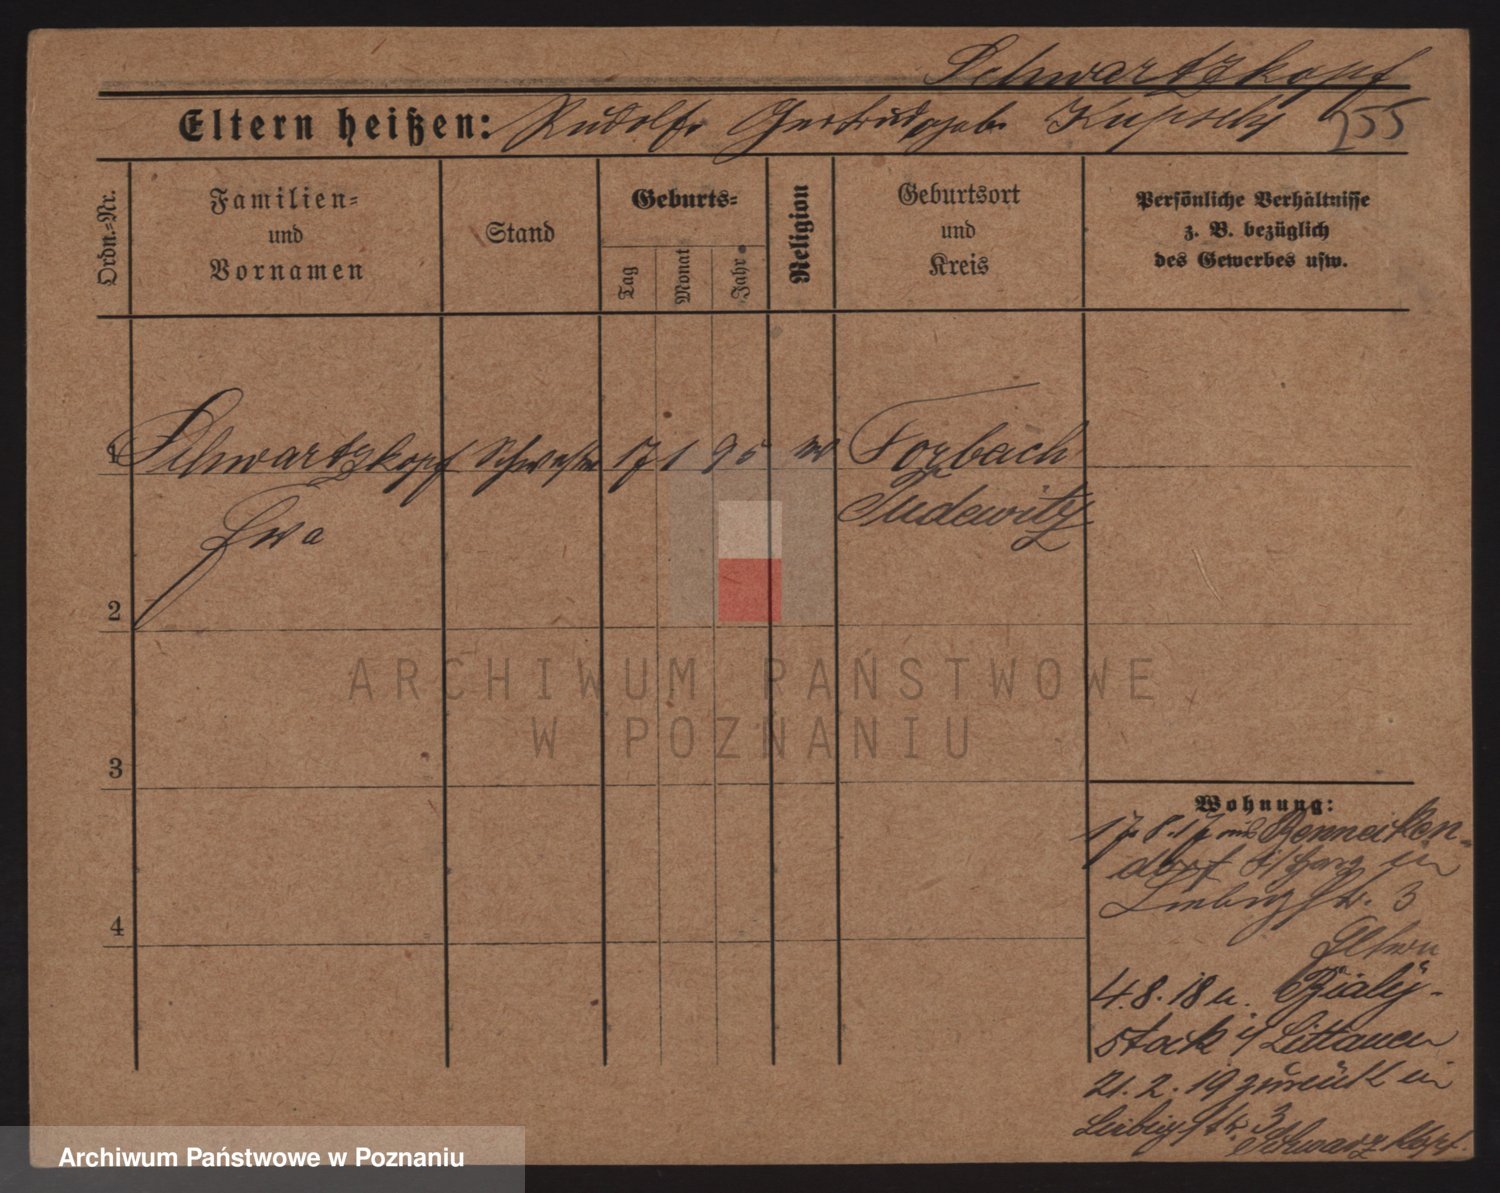 Schwartzkopf
Eltern heißen: Rudolf Gertrud geb. Kupsch 255
Ordn.-Nr.
Familien-
und
Vornamen
Stand
Geburts-
Tag
Monat
Jahr
Religion
Geburtsort
und
Kreis
Persönliche Verhältnisse
z. B. bezüglich
des Gewerbes usw.
1 Schwartzkopf Schwester 17 1 95 Forbach
Eva Pudewitz
2
3
4
Wohnung:
17.8.17 aus Benneiken-
dorf in
Leibnizstr. 3
Eltern
4.8.18 n. Bialy-
stock i/ Littauen
21.2.19 zurück in
Leibnizstr. 3
Schwarzkopf
ARCHIWUM PAŃSTWOWE
W POZNANIU
Archiwum Państwowe w Poznaniu